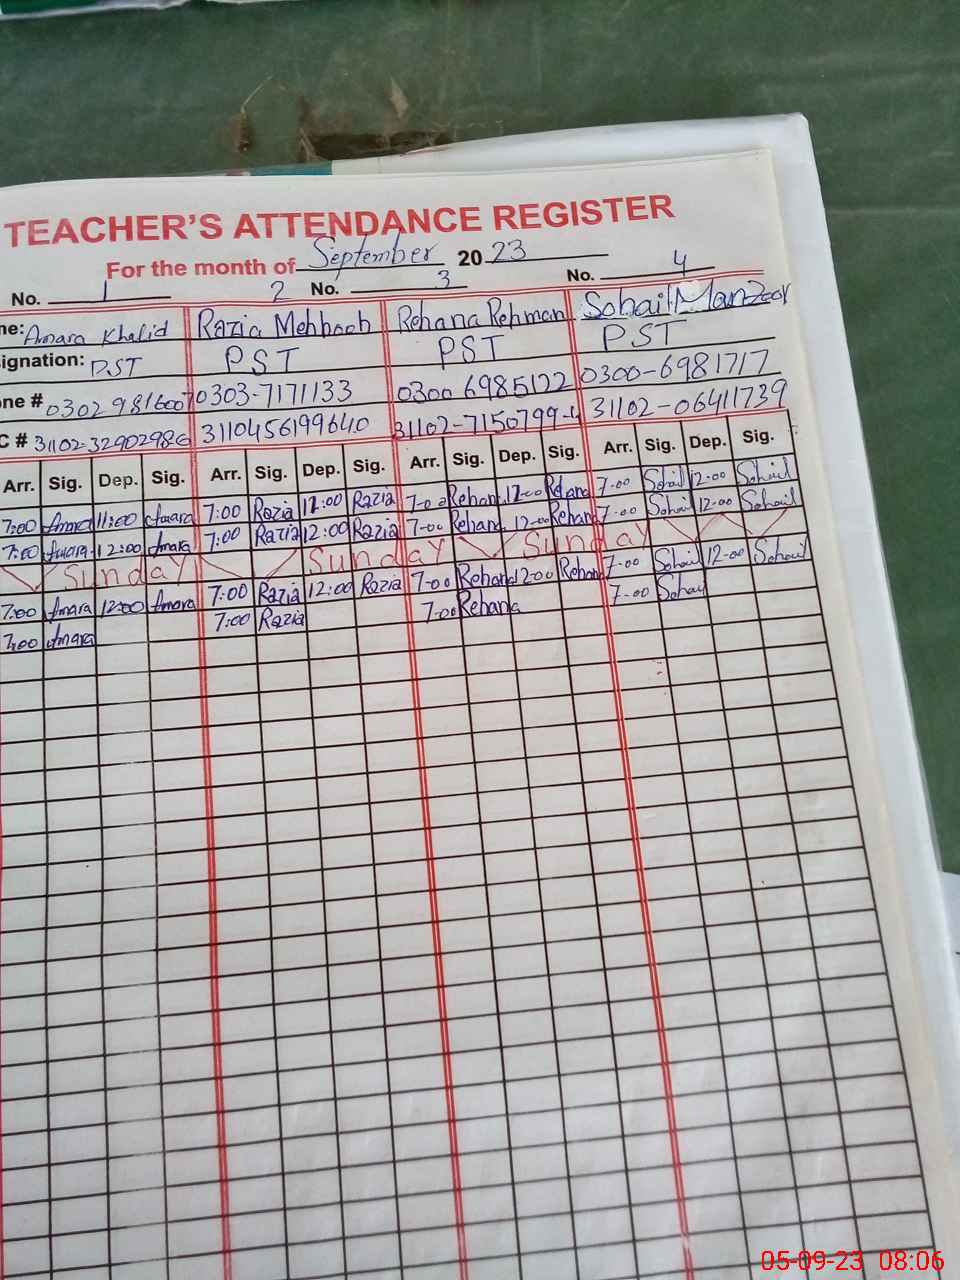 TEACHER'S ATTENDANCE REGISTER
For the month of September 2023
No. 1 2 No. 3 No. 4
ne: Amara Khalid Razia Mehboob Rehana Rehman Sohail Manzoor
signation: PST PST PST PST
one # 0303-7171133 0300 6985122 0300-6981717
C # 31102-32902986 3110456199640 31102-7150799-4 31102-06411739
Arr. Sig. Dep. Sig. Arr. Sig. Dep. Sig. Arr. Sig. Dep. Sig. Arr. Sig. Dep. Sig.
7:00 Amara 11:00 Amara 7:00 Razia 12:00 Razia 7-00 Rehana 12-00 Rehana 7-00 Sohail 12-00 Sohail
7:00 Amara 12:00 Amara 7:00 Razia 12:00 Razia 7-00 Rehana 12-00 Rehana 7-00 Sohail 12-00 Sohail
Sunday Sunday Sunday
7:00 Amara 12:00 Amara 7:00 Razia 12:00 Razia 7-00 Rehana 12-00 Rehana 7-00 Sohail 12-00 Sohail
7:00 Amara 7:00 Razia 7-00 Rehana 7-00 Sohail
05-09-23 08:06